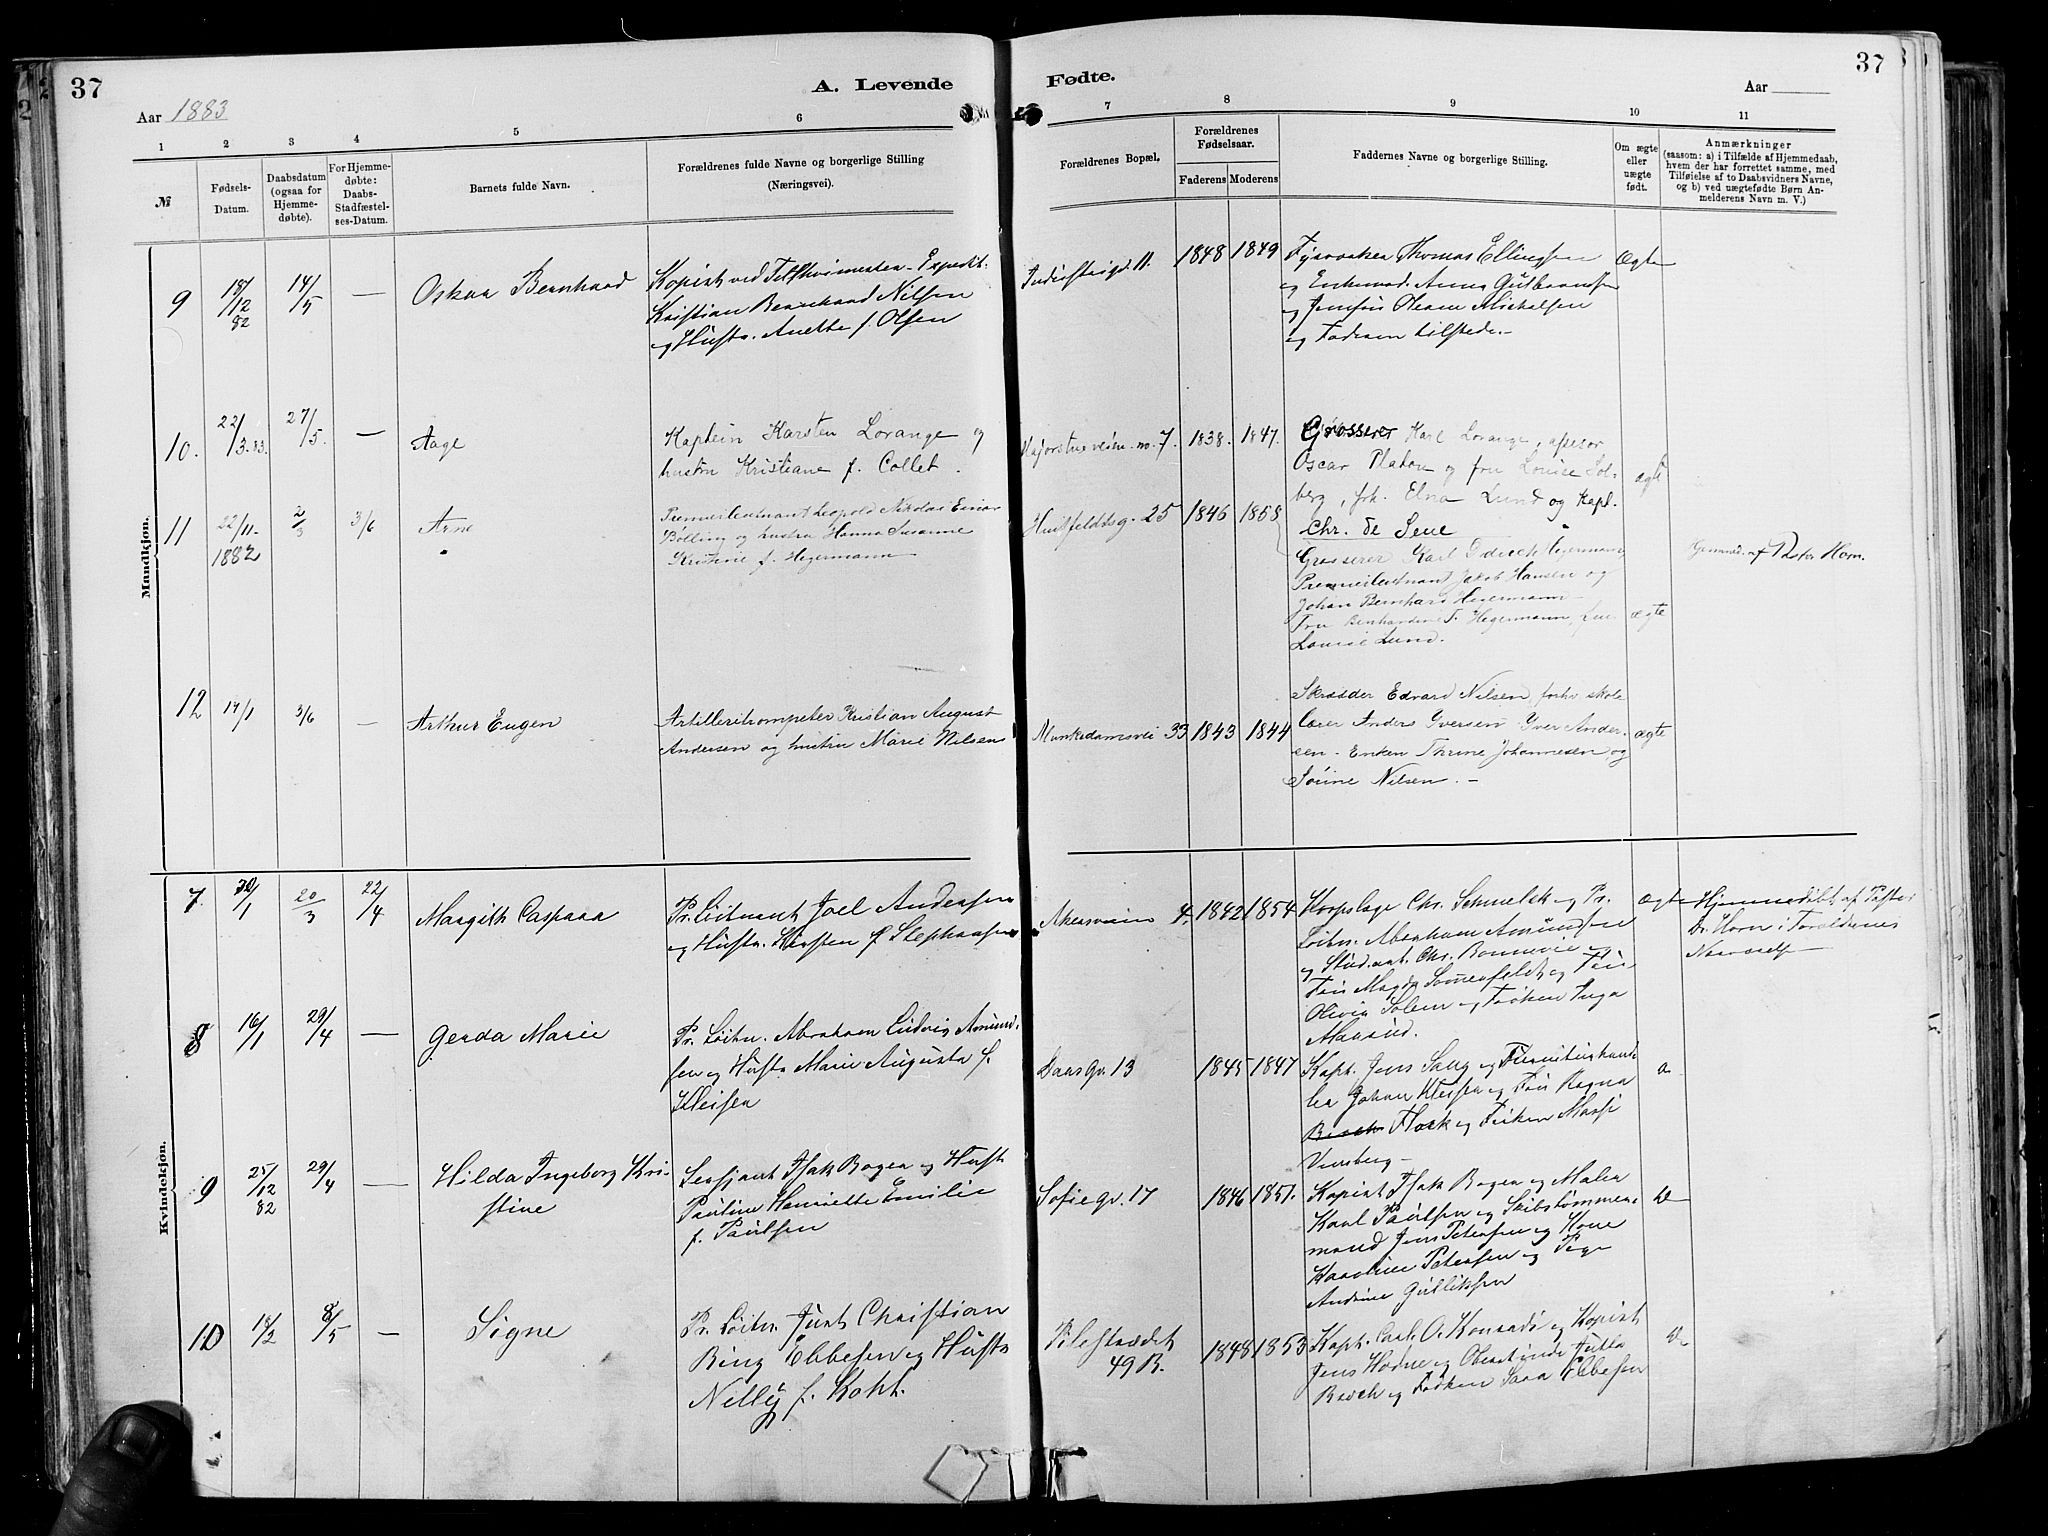 37
A. Levende
Aar 1883
1 2 3 4 5 6
№
Fødsels-
Datum.
Daabsdatum
(ogsaa for
Hjemme-
døbte).
For Hjemme-
døbte:
Daabs-
Stadfæstel-
ses-Datum.
Barnets fulde Navn.
Forældrenes fulde Navne og borgerlige Stilling
(Næringsvei).
Fødte.
37
Aar
7 8 9 10 11
Forældrenes Bopæl.
Forældrenes
Fødselsaar.
Faderens Moderens
Faddernes Navne og borgerlige Stilling.
Om ægte
eller
uægte
født.
Anmærkninger
(saasom: a) i Tilfælde af Hjemmedaab,
hvem der har forrettet samme, med
Tilføielse af to Daabsvidners Navne,
og b) ved uægtefødte Børn An-
melderens Navn m. V.)
Mandkjøn.
9 18/12 82 14/5 — Oskar Bernhard
Kopist ved
Kristian Bernhard Nilsen
og Hustr. Anette f. Olsen
Industrigd. 11. 1848 1849
Fyrvoker Thomas Ellingsen
og Enkemad. Anna Gulbransen
og Jomfru Oleane Mickalsen
og Faderen tilstede.-
Ægte
10. 22/3.83. 27/5. — Aage
Kaptein Karsten Lorange og
hustru Kristiane f. Collet.
Majorstueveien no. 7. 1838. 1847.
Grosserer Karl Lorange, assesor
Oscar Platou og fru Louise Sol-
berg, frk. Elna Lund og kapt.
Chr. de Seue
ægte
11 22/11-1882 2/3 3/6 Arne
Premierlieutnant Leopold Nikolai Einar
Bölling og hustru Hanna Susanne
Kristine f. Hegermann
Huitfeldtsg. 25 1846 1858
Grosserer Karl Didrich Hegermann
Premierlieutnant Jakob Hansen og
Johan Bernhard Hegermann
Fru Bernhardine T. Hegermann,
Louise Lund.
ægte
Hjemmed. af Pastor Horn.
12 14/1 3/6 — Arthur Eugen
Artilleritrompeter Kristian August
Andersen og hustru Marie Nilsen
Munkedamsvei 33 1843 1844
Skrædder Edvard Nilsen, forhv skole
lærer Anders Iversen Iver Ander-
sen - Enken Thrine Johannesen og
Sörine Nilsen. -
ægte
Kvindekjøn.
7 30/1 20/3 22/4 Margith Caspara
Pr. Löitnant Joel Andersen
og Hustr. Kirsten f. Stephansen
Akersveien 4. 1842 1854
Korpslæge Chr. Schmelck og Pr.
Löitn. Abraham Amundsen
og Stud. ant. Chr. Bonnevie og
Fru Magda Sömenfeldt og Fru
Olivia Solem og Fröken Inga
ægte
Hjemmedöbt af Pastor
Dr. Horn i Foreldrenes
8 16/1 29/4 — Gerda Marie
Pr. Löitn. Abraham Ludvig Amund-
sen og Hustr Marie Augusta f.
Kleisen
Daasgv. 13 1845 1847
Kapt. Jens Sang og
ler Johan og Fru Ragna
Flock og Fröken
9 25/12 82 29/4 — Hilda Ingeborg Kri-
stine
Sersjant Isak Bogen og Hustr
Pauline Henriette Emilie
f. Paulsen
Sofiegv. 17 1846 1851.
Kopist Isak Bogen og Maler
Karl Paulsen og Skibstömmer-
mand Jens Petersen og Kone
Karoline Petersen og Pige
Andrine Gulliksen
10 18/2 8/5 — Signe
Pr. Löitn. Just Christian
Bing Ebbesen og Hustr
Nelly f. Koht.
Pilestrædet
49 B. 1848 1853
Kapt. Carl O. Konradi og Kopist
Jens Hodne og Oberstinde Jutta
Barch og Fröken Sara Ebbesen